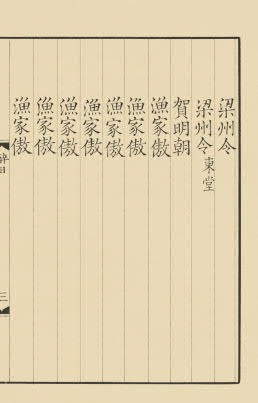 梁州令
梁州令東堂
賀明朝
漁家傲
漁家傲
漁家傲
漁家傲
漁家傲
漁家傲
漁家傲
三